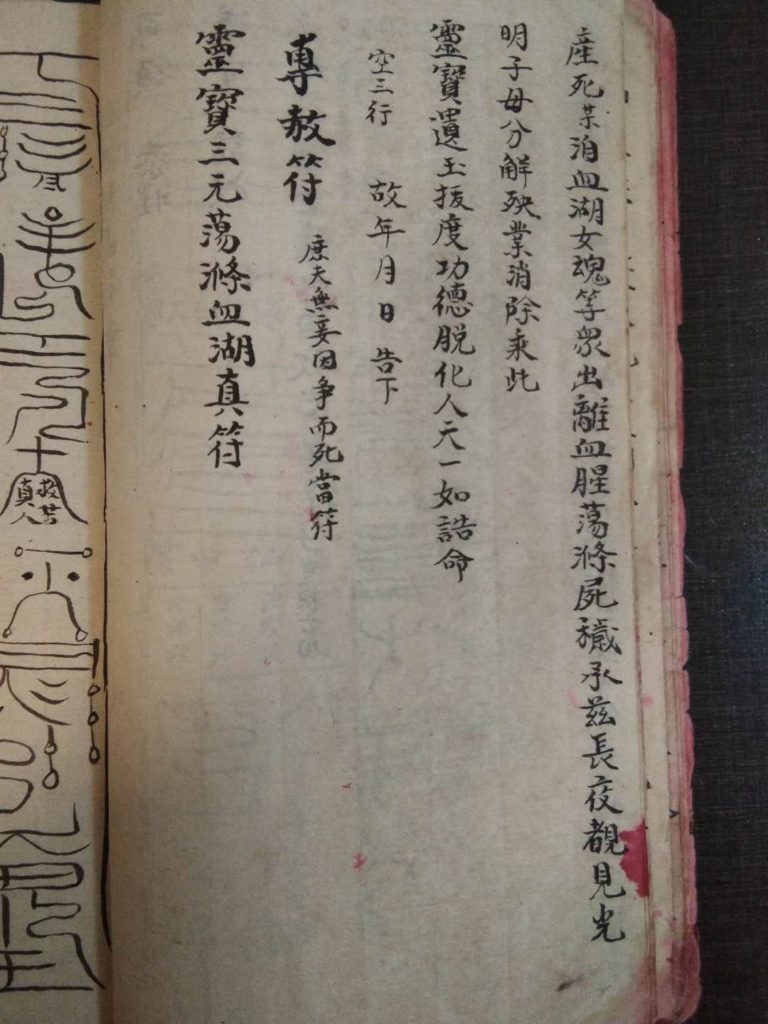 産死某洎血湖女魂等眾出離血腥蕩滌屍穢承茲長夜覩見光
明子母分解殃業消除乘此
靈寶遺玉拔度功德脱化人天一如誥命
空三行 故年月日告下
專赦符 庶夫無妄因争而死當符
靈寶三元蕩滌血湖真符
救苦
真人